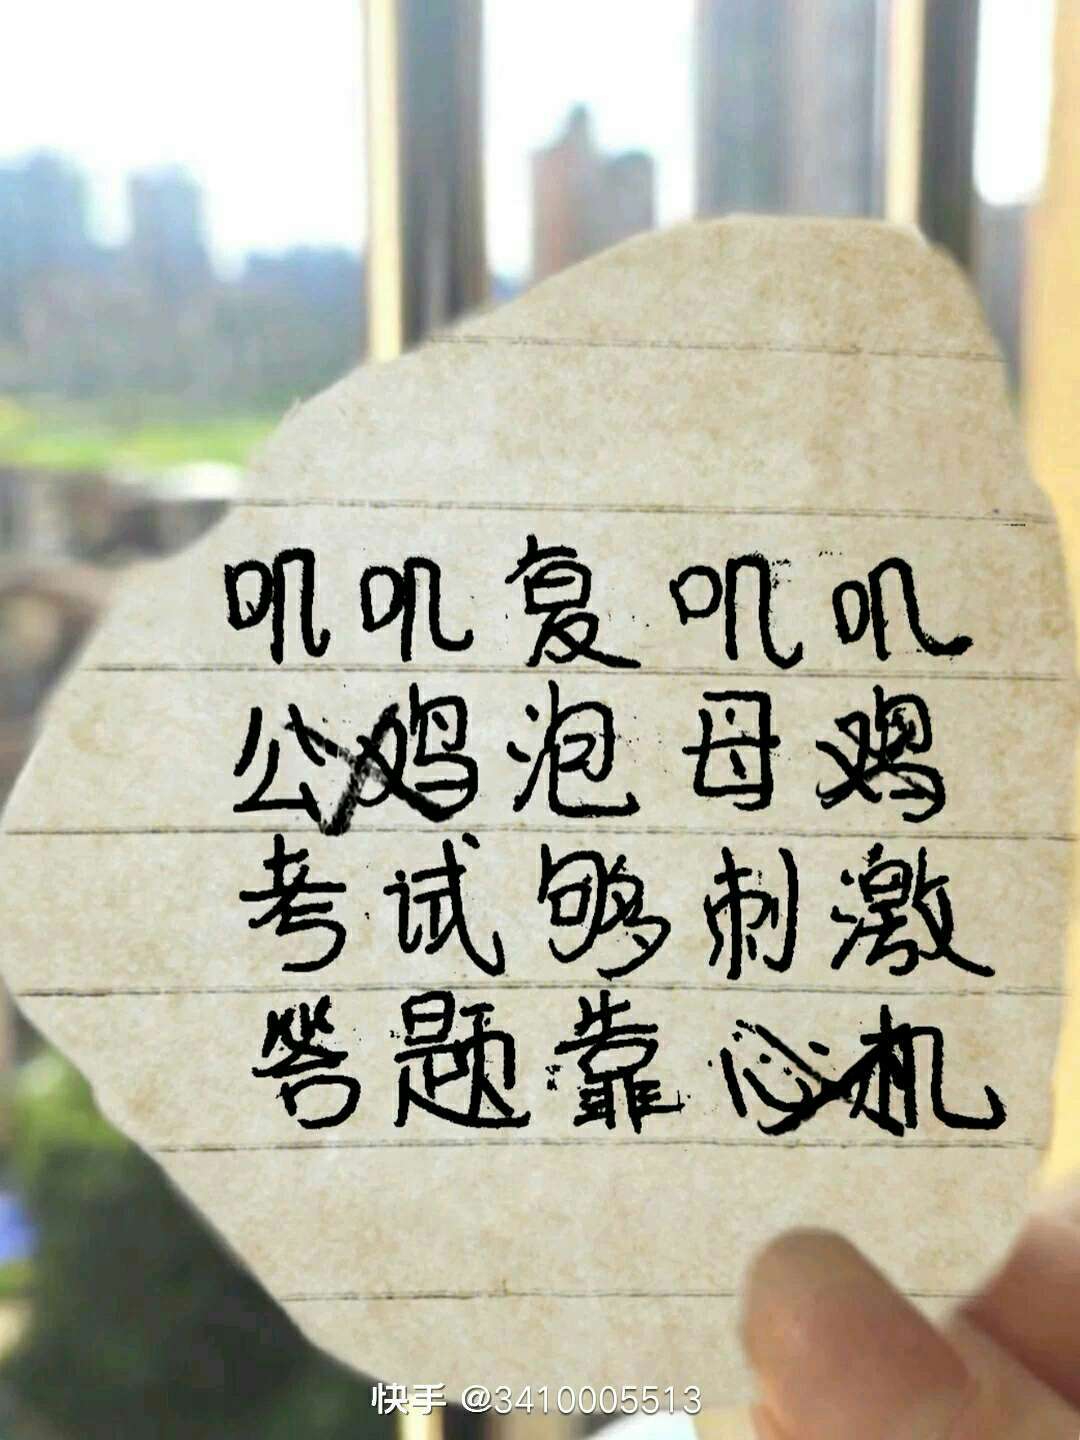 叽叽复叽叽
公鸡泡母鸡
考试够刺激
答题靠心机
快手 @3410005513